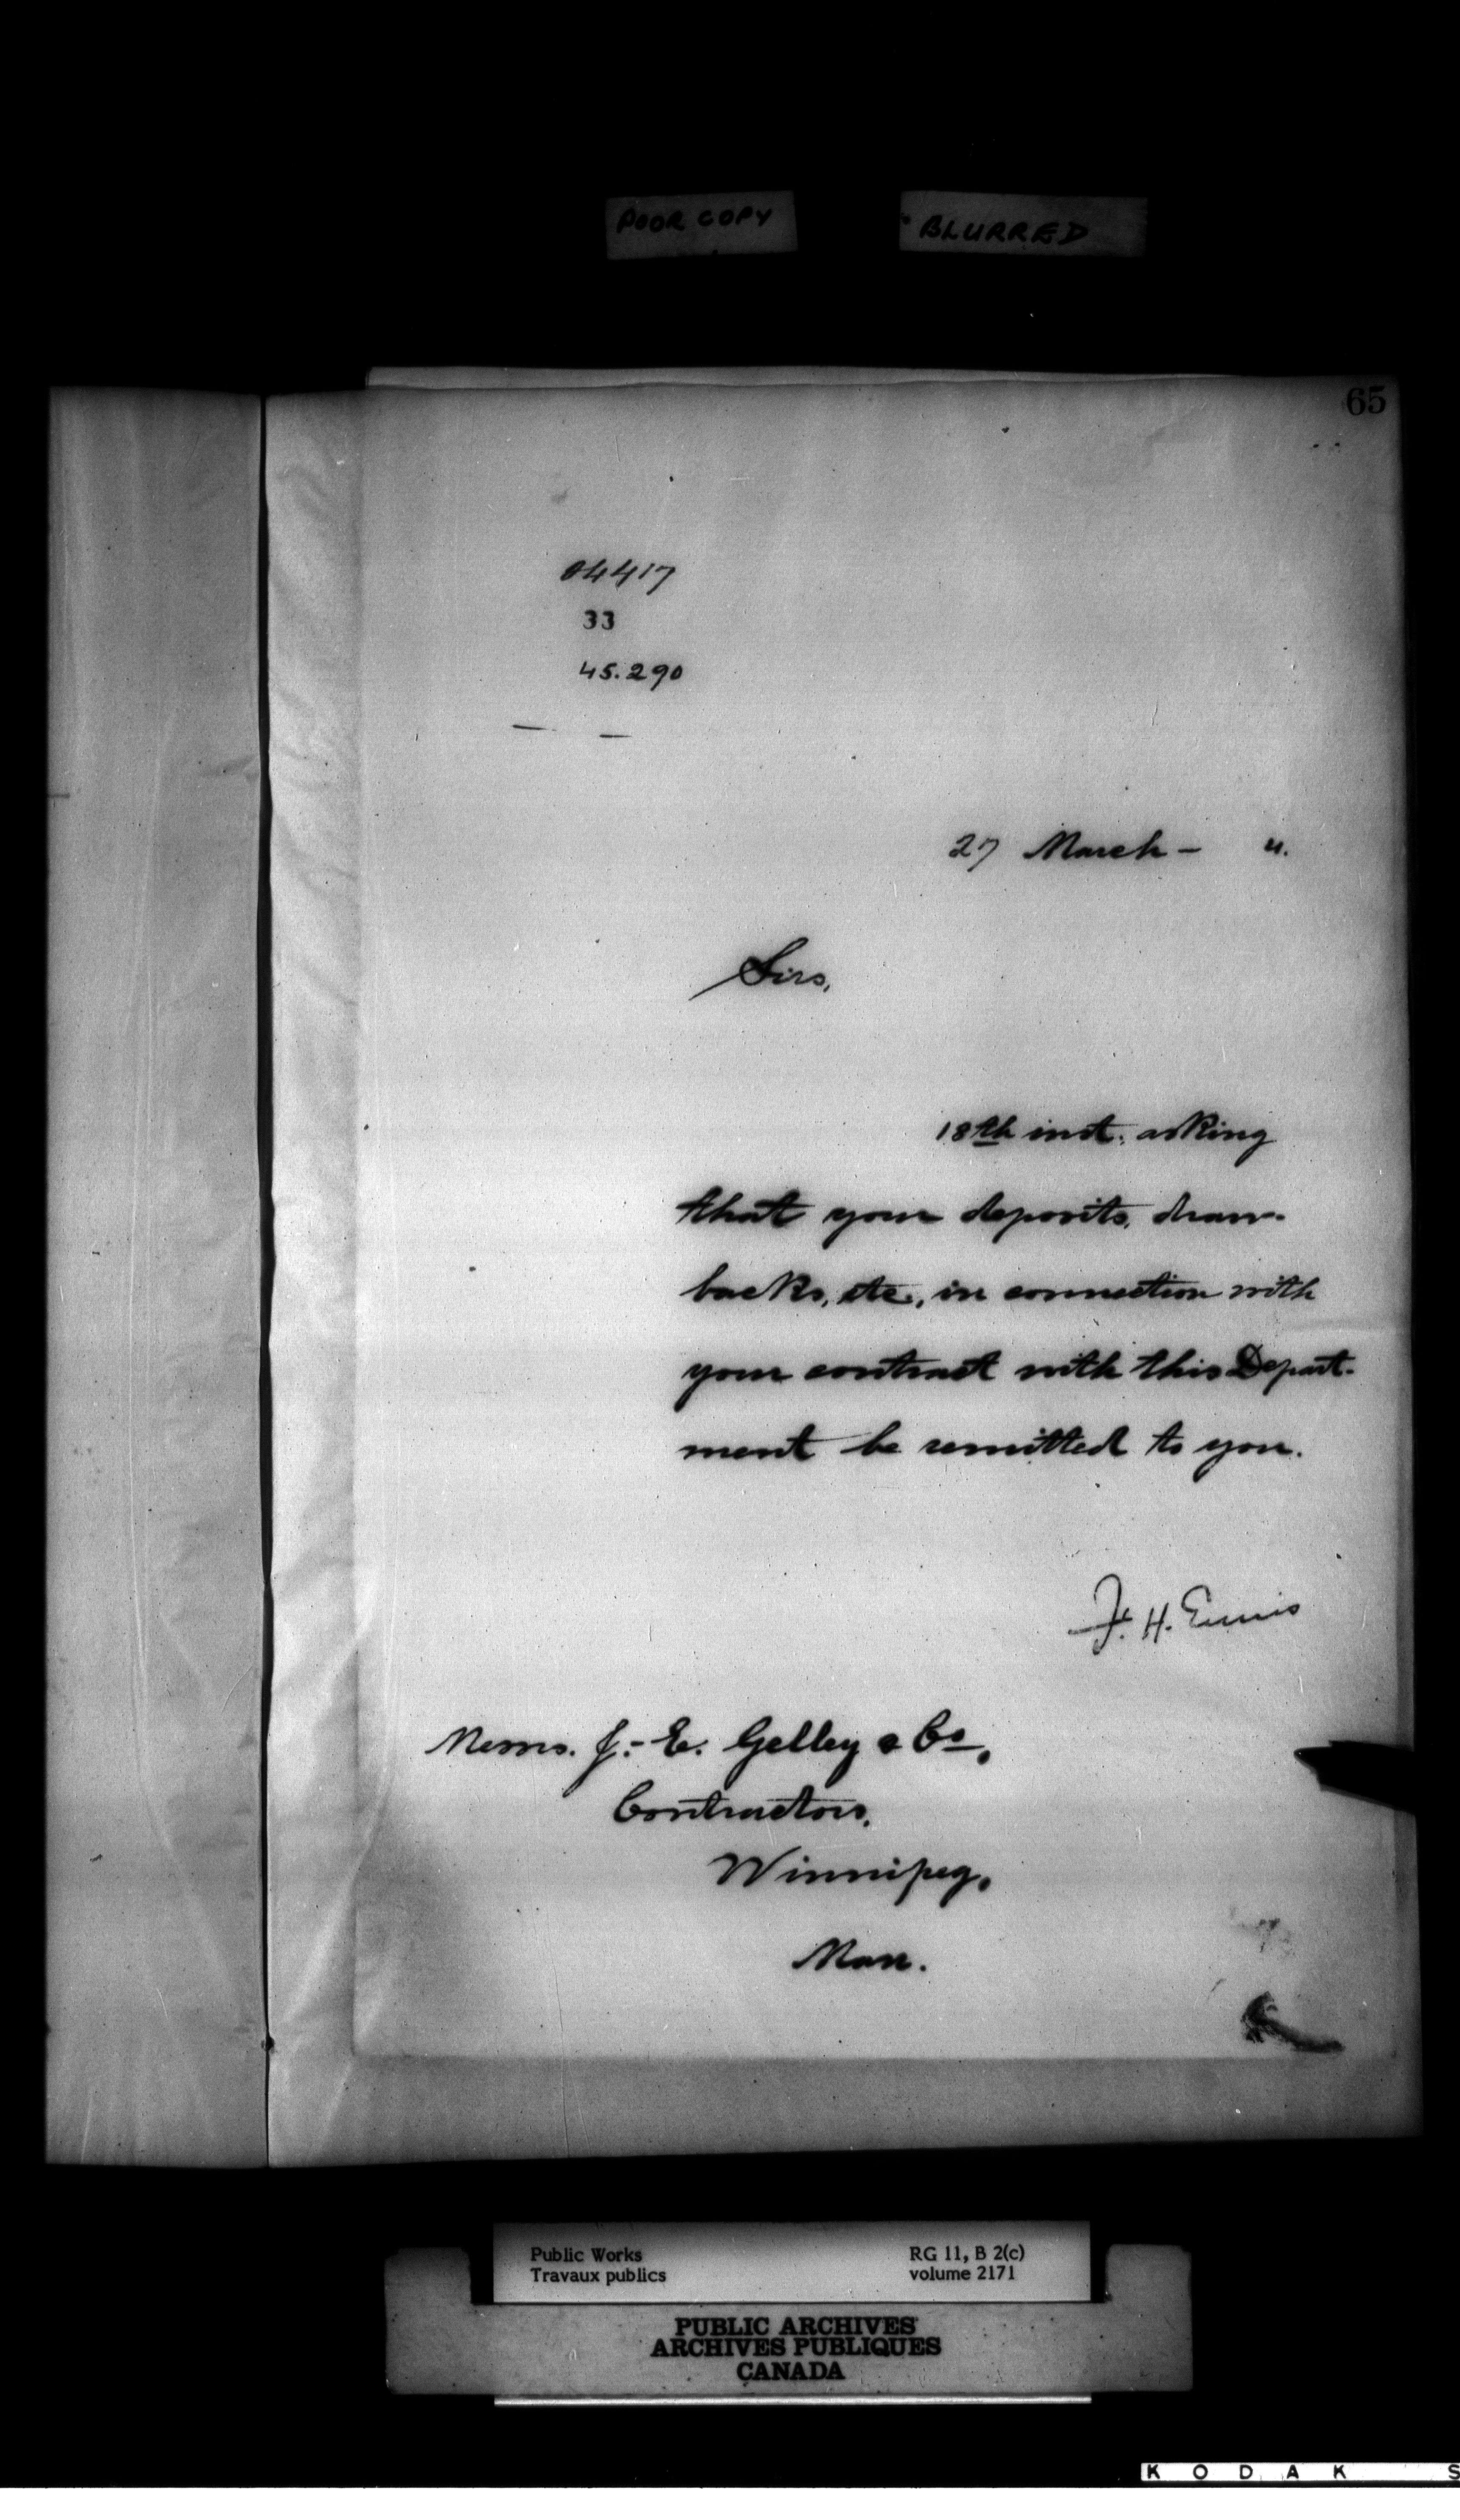 POOR COPY
BLURRED
65
04417
33
45.290
27 March - 4.
Sirs,
18th inst. asking
that your deposits, draw-
backs, etc., in connection with
your contract with this Depart-
ment be remitted to you.
F. H. Ennis
Messrs. J.-E. Gelley & Co.,
Contractors,
Winnipeg,
Man.
Public Works
Travaux publics
RG 11, B 2(c)
volume 2171
PUBLIC ARCHIVES
ARCHIVES PUBLIQUES
CANADA
KODAK S